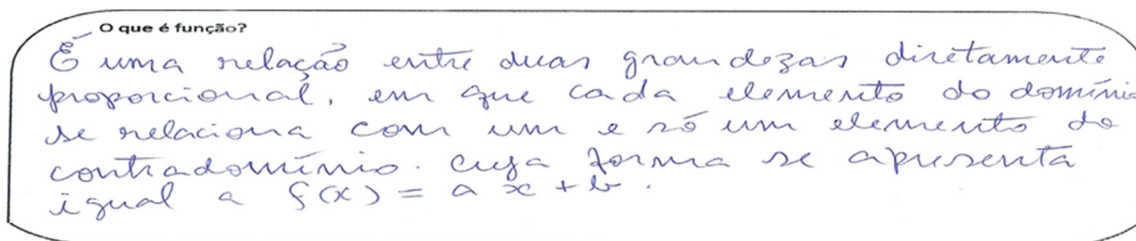 O que é função?
É uma relação entre duas grandezas diretamente
proporcional, em que cada elemento do domínio
se relaciona com um e só um elemento do
contradomínio. cuja forma se apresenta
igual a f(x) = ax + b.